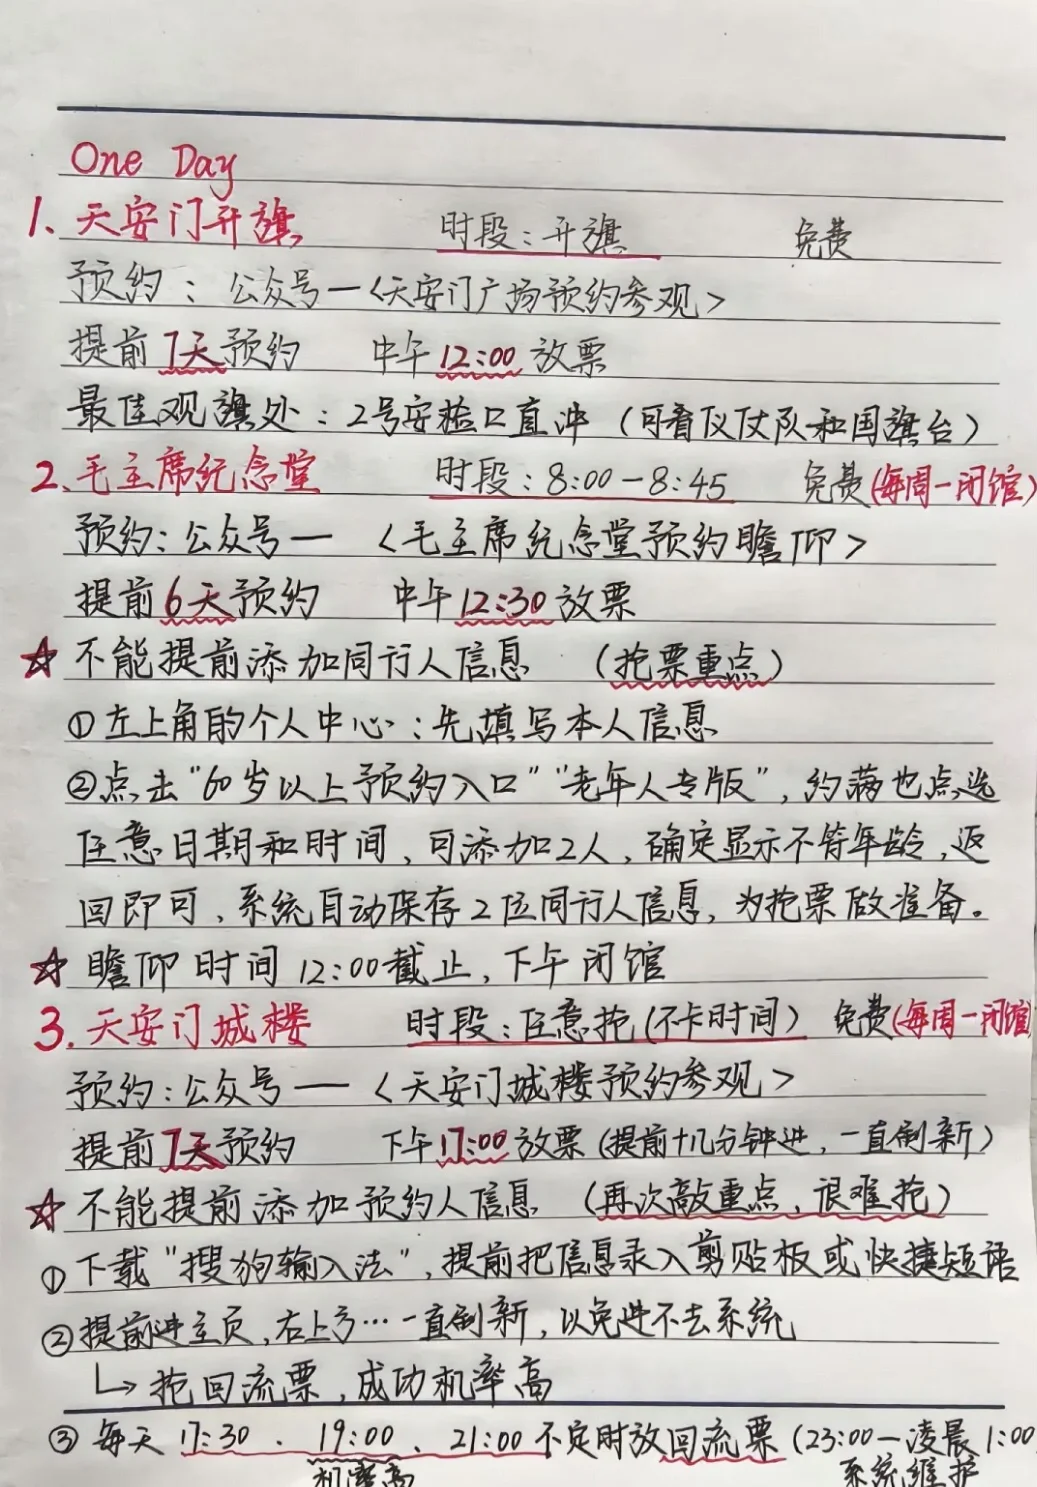 One Day
1、天安门升旗 时段：升旗 免费
预约：公众号—<天安门广场预约参观>
提前7天预约 中午12:00放票
最佳观旗处：2号安检口直冲（可看仪仗队和国旗台）
2、毛主席纪念堂 时段：8:00—8:45 免费(每周一闭馆)
预约：公众号—<毛主席纪念堂预约瞻仰>
提前6天预约 中午12:30放票
☆不能提前添加同行人信息 （抢票重点）
①左上角的个人中心：先填写本人信息
②点击“60岁以上预约入口”“老年人专版”，约满也点选
任意日期和时间，可添加2人，确定显示不符年龄，返
回即可，系统自动保存2位同行人信息，为抢票做准备。
☆瞻仰时间12:00截止，下午闭馆
3.天安门城楼 时段：任意抢(不卡时间) 免费(每周一闭馆)
预约：公众号—<天安门城楼预约参观>
提前7天预约 下午17:00放票(提前十几分钟进，一直刷新)
☆不能提前添加预约人信息 (再次敲重点，很难抢)
①下载“搜狗输入法”，提前把信息录入剪贴板或快捷短语
②提前进主页，右上方…一直刷新，以免进不去系统
↳抢回流票，成功机率高
③每天17:30、19:00、21:00不定时放回流票(23:00—凌晨1:00
机率高 系统维护